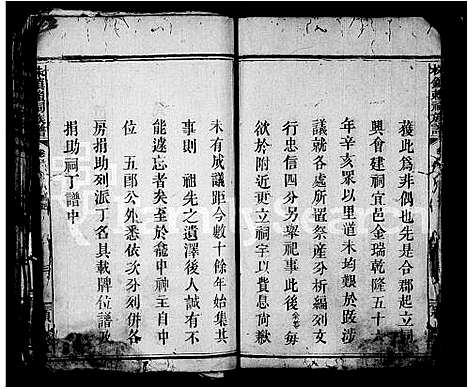 獲此為非偶也先是合郡起立
興會建祠宜邑金瑞乾隆五十
年辛亥眾以里道未均艱於跋涉
議就各處所置祭產分析編列支
行忠信四分另舉祀事此後
欲於附近更立祠宇以
未有成議距今數十餘年始集其
事則 祖先之遺澤後人誠有不
能遽忘者矣至於龕中神主自中
位 五郎公外悉依次分列併各
房捐助列派丁名具載牌位譜及
捐助祠丁譜中